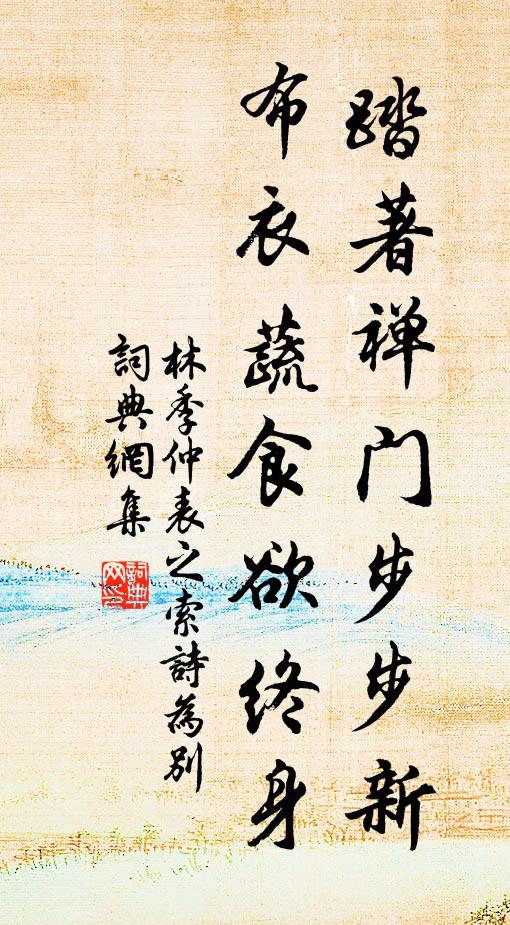 踏著禅门步步新
布衣蔬食欲终身
林季仲表之索詩為别
詞典網集
詞典网印